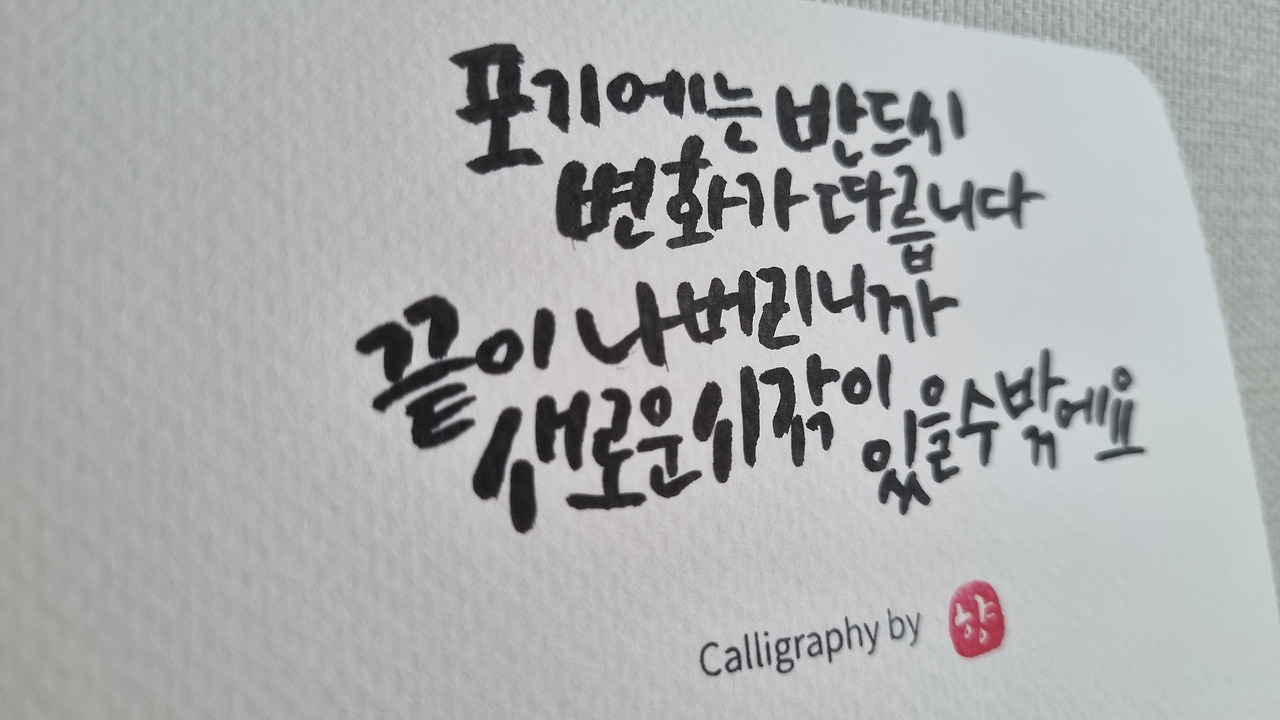 포기에는 반드시
변화가 따릅니다
끝이 나버리니까
새로운 시작이 있을 수 밖에요
Calligraphy by 향